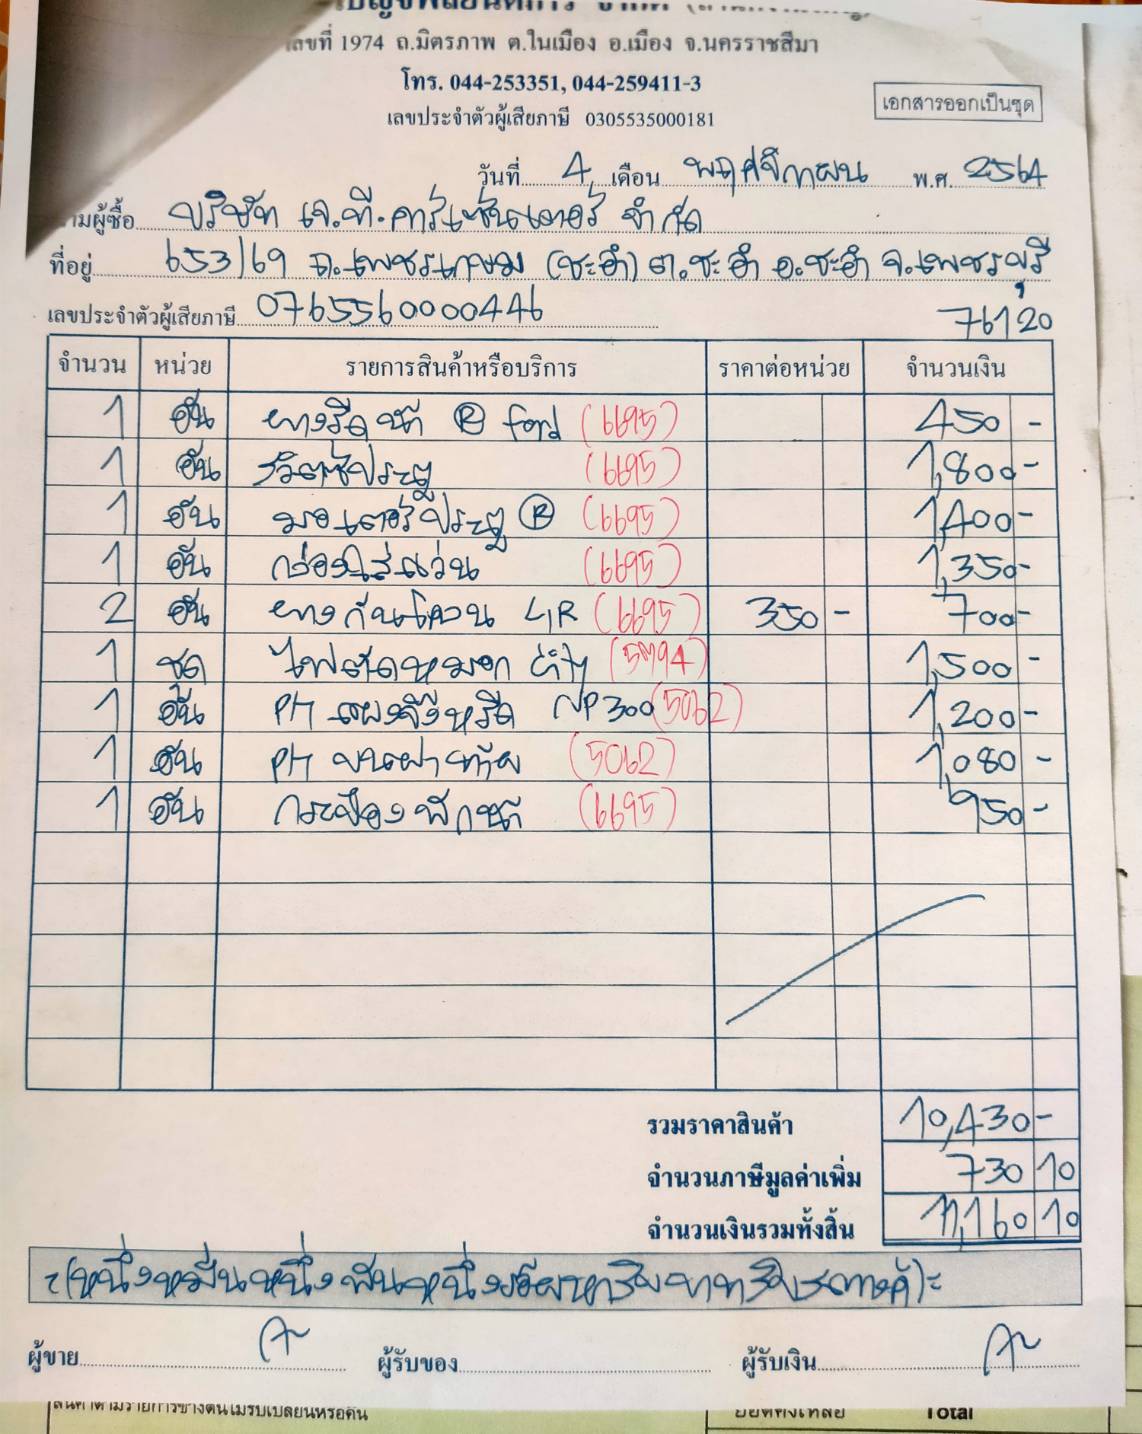 เลขที่ 1974 ถ.มิตรภาพ ต.ในเมือง อ.เมือง จ.นครราชสีมา
โทร. 044-253351, 044-259411-3
เลขประจำตัวผู้เสียภาษี 0305535000181
เอกสารออกเป็นชุด
วันที่ 4 เดือน พฤศจิกายน พ.ศ. 2564
นามผู้ซื้อ บริษัท เจ.ที.คาร์เซ็นเตอร์ จำกัด
ที่อยู่ 653/69 ถ.เพชรเกษม (ชะอำ) ต.ชะอำ อ.ชะอำ จ.เพชรบุรี
76120
เลขประจำตัวผู้เสียภาษี 0765560000446
จำนวน หน่วย รายการสินค้าหรือบริการ ราคาต่อหน่วย จำนวนเงิน
1 อัน ยางรีดน้ำ R ford (6695) 450 -
1 อัน สวิตซ์ประตู (6695) 1,800 -
1 อัน มอเตอร์ประตู R (6695) 1,400 -
1 อัน กล่องใส่แว่น (6695) 1,350 -
2 อัน ยางกันโคลน L,R (6695) 350 - 700 -
1 ชุด ไฟตัดหมอก city (5794) 1,500 -
1 อัน PH แผงจังหรีด NP300 (5062) 1,200 -
1 อัน PH บนฝาท้าย (5062) 1,080 -
1 อัน กระป๋องพักน้ำ (6695) 950 -
รวมราคาสินค้า 10,430 -
จำนวนภาษีมูลค่าเพิ่ม 730 10
จำนวนเงินรวมทั้งสิ้น 11,160 10
(หนึ่งหมื่นหนึ่งพันหนึ่งร้อยหกสิบบาทสิบสตางค์)
ผู้ขาย ผู้รับของ ผู้รับเงิน
Total